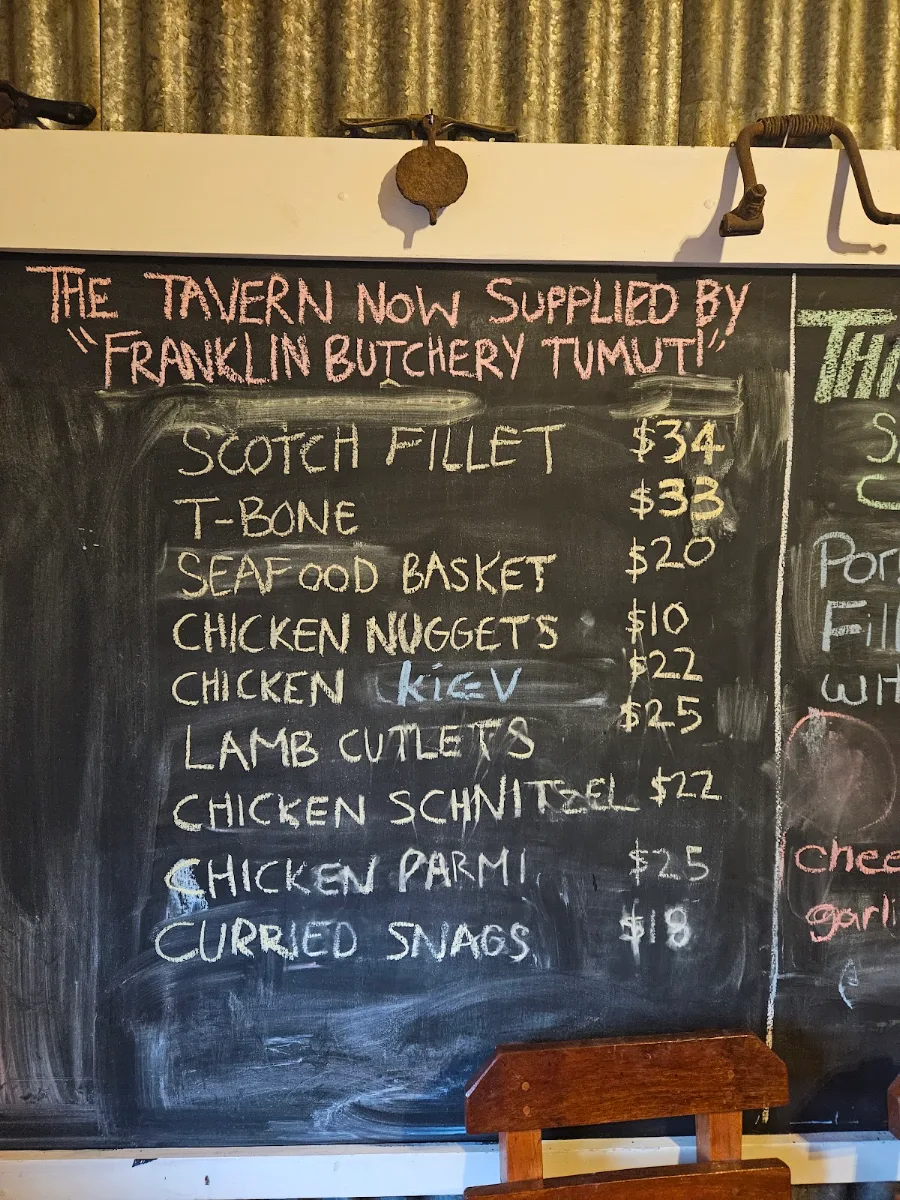 THE TAVERN NOW SUPPLIED BY
"FRANKLIN BUTCHERY TUMUT!"
SCOTCH FILLET $34
T-BONE $33
SEAFOOD BASKET $20
CHICKEN NUGGETS $10
CHICKEN KiEV $22
LAMB CUTLETS $25
CHICKEN SCHNITZEL $22
CHICKEN PARMI $25
CURRIED SNAGS $18